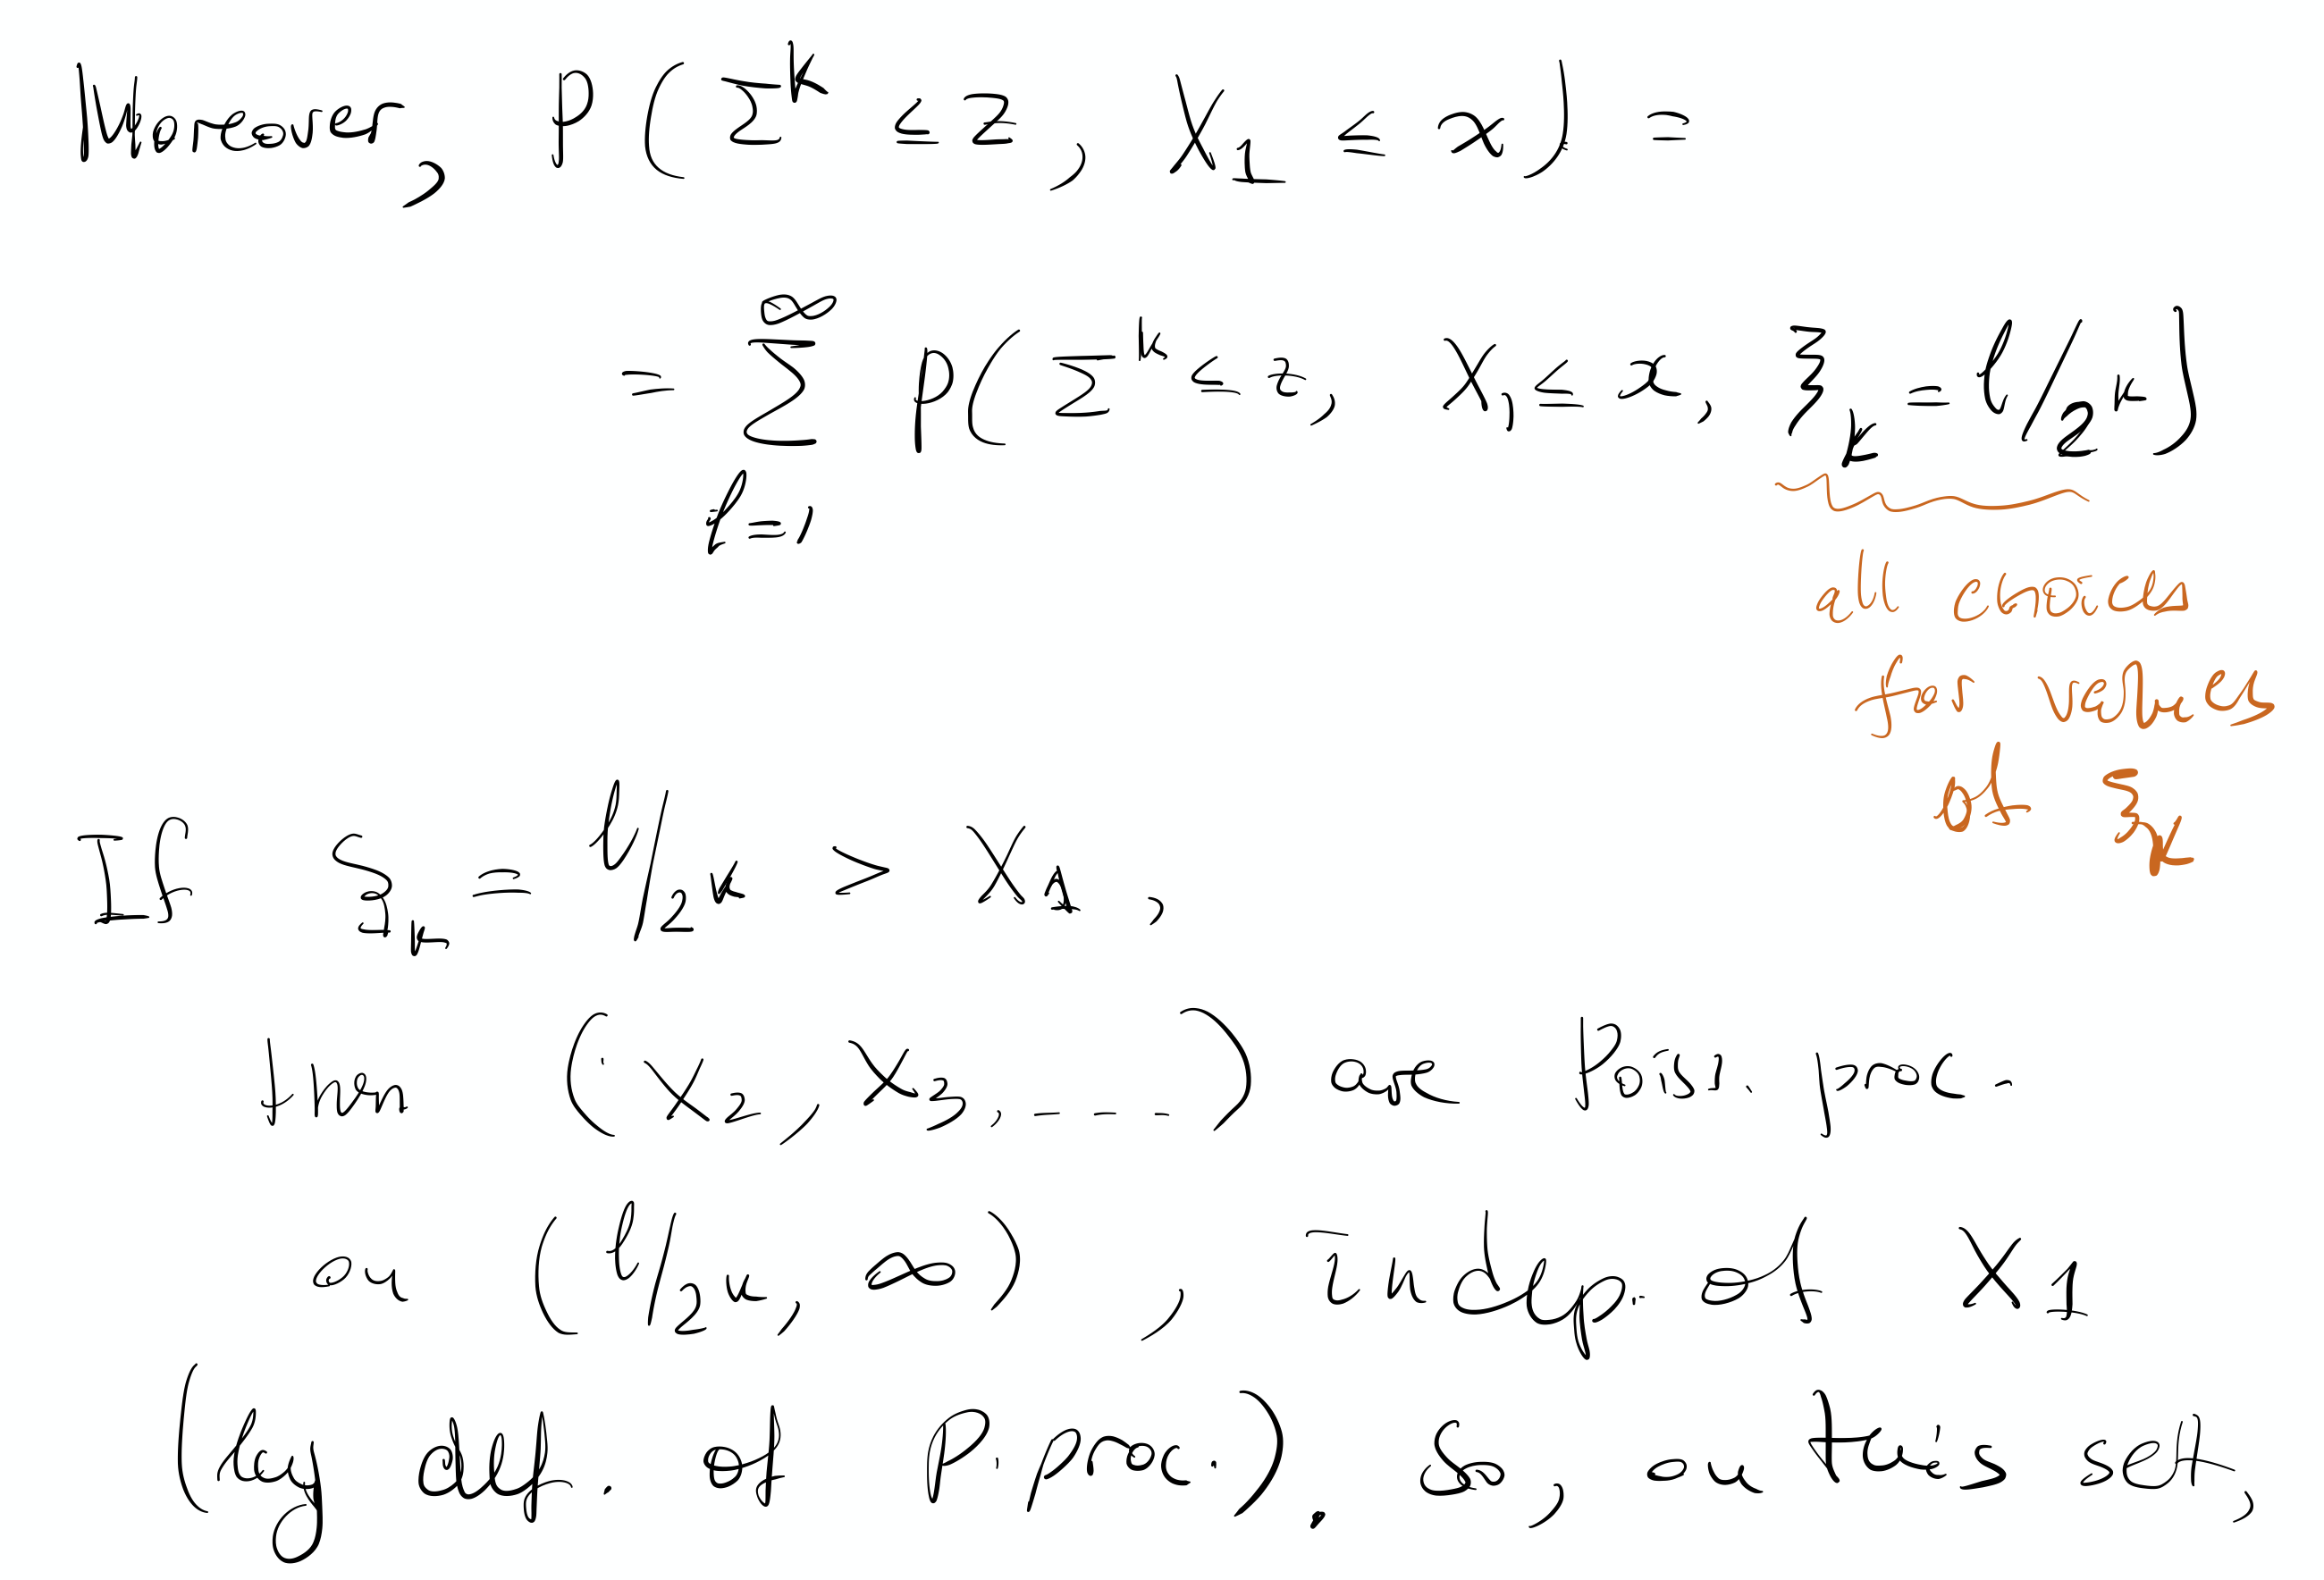 Moreover, P ( Σ^k ≤ z , X_1 ≤ x ) =
= ∑_{ℓ=1}^∞ P ( Σ^k ≤ z, X_1 ≤ x , ξ_k = ℓ/2^k )
all choices
for values
of ξ_k
If ξ_k = ℓ/2^k > X_1 ,
then ( X_2, X_3, ... ) are Poiss. proc.
on (ℓ/2^k, ∞) , indep. of X_1
(by def. of P. proc.). So, on this set,